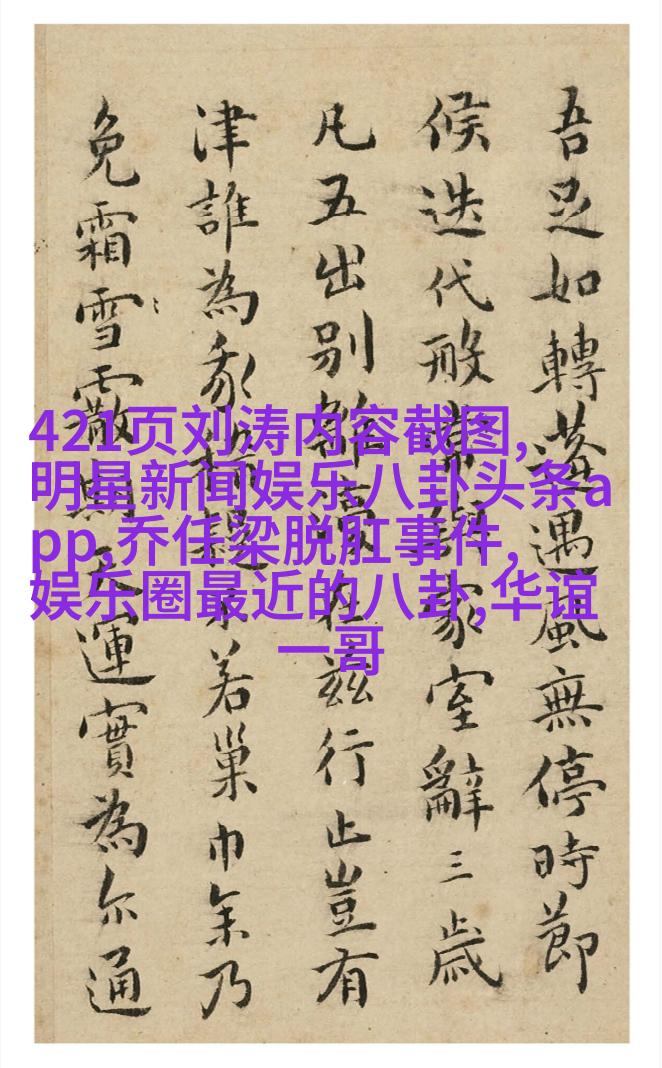 421页刘涛内容截图,
明星新闻娱乐八卦头条a
pp,乔任梁脱肛事件,
娱乐圈最近的八卦,华谊
一哥
吾足如轉蓬遇風無停時節
候迭代般家室辭三歲
凡五出別離在茲行止豈有
津誰為我若巢巾乃
免霜雪天運實為尔通